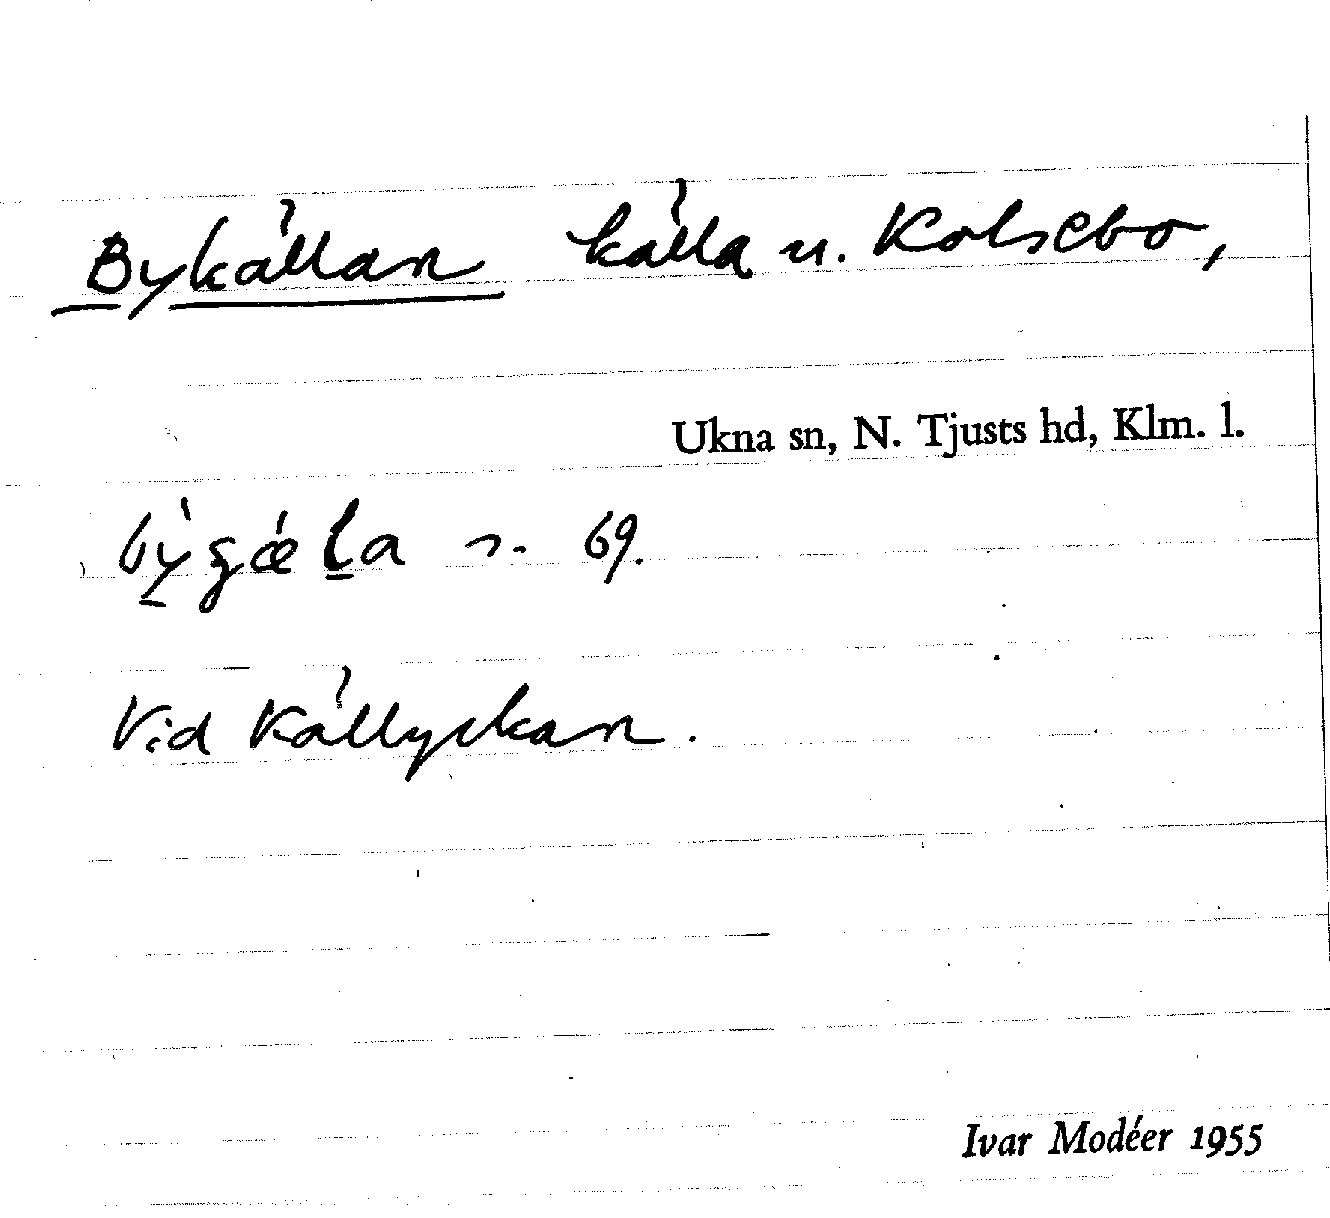 Bykällan källa u. Kolsebo,
Ukna sn, N. Tjusts hd, Klm. l.
69.
Vid Källyckan.
Ivar Modéer 1955